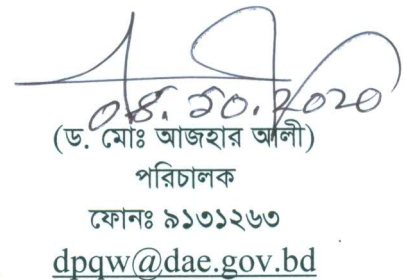 ০৪.১০.২০২০
(ড. মোঃ আজহার আলী)
পরিচালক
ফোনঃ ৯১৩১২৬৩
dpqw@dae.gov.bd